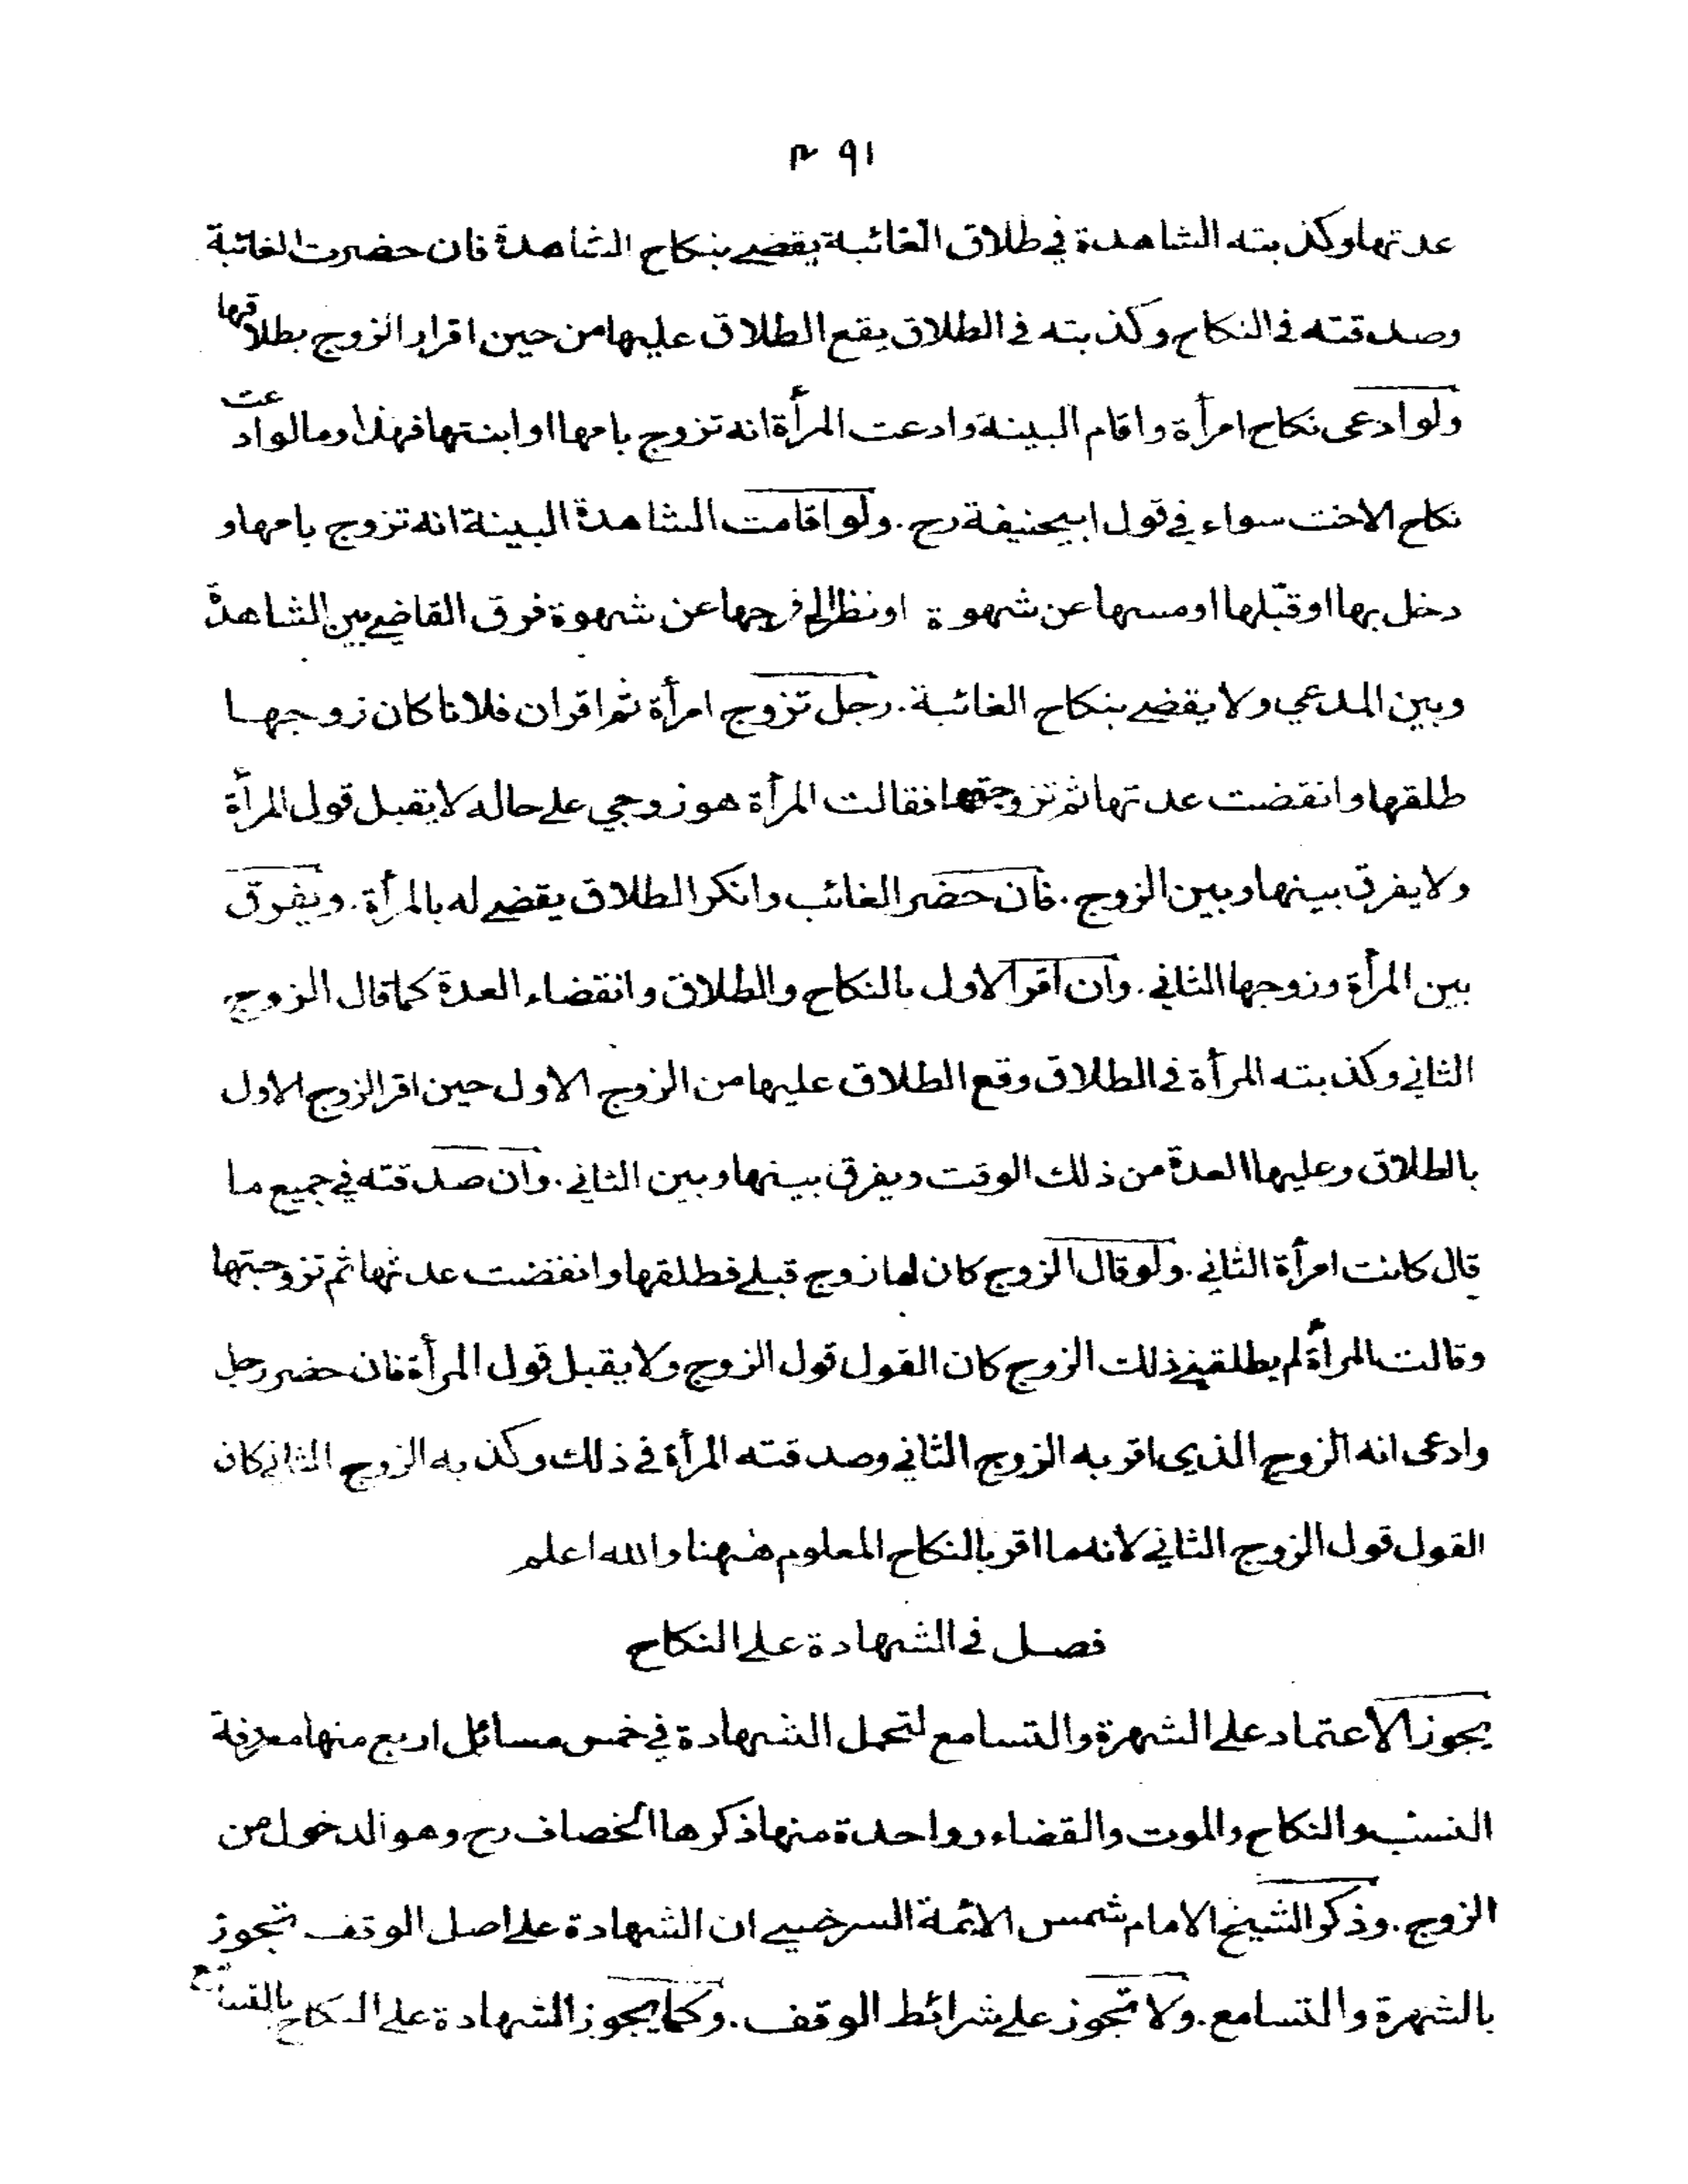 ٤٩١
عدتها وكذبته الشاهدة في طلاق الغائبة يقضي بنكاح الشاهدة فان حضرت الغائبة
وصدقته في النكاح وكذبته في الطلاق يقع الطلاق عليها من حين اقرار الزوج بطلاقها
ولو ادعى نكاح امرأة واقام البينة وادعت المرأة انه تزوج بامها او ابنتها فهذا وما لو ادعت
نكاح الاخت سواء في قول ابيحنيفة رح. ولو اقامت الشاهدة البينة انه تزوج بامها و
دخل بها او قبّلها او مسها عن شهوة او نظر الى فرجها عن شهوة فرق القاضي بين الشاهدة
وبين المدعي ولا يقضي بنكاح الغائبة. رجل تزوج امرأة ثم اقر ان فلانا كان زوجها
طلقها وانقضت عدتها ثم تزوجتها فقالت المرأة هو زوجي على حاله لا يقبل قول المرأة
ولا يفرق بينها وبين الزوج. فان حضر الغائب وانكر الطلاق يقضي له بالمرأة. ويفرق
بين المرأة وزوجها الثاني. وان اقر الاول بالنكاح والطلاق وانقضاء العدة كما قال الزوج
الثاني وكذبته المرأة في الطلاق وقع الطلاق عليها من الزوج الاول حين اقر الزوج الاول
بالطلاق وعليها العدة من ذلك الوقت ويفرق بينها وبين الثاني. وان صدقته في جميع ما
قال كانت امرأة الثاني. ولو قال الزوج كان لها زوج قبلي فطلقها وانقضت عدتها ثم تزوجتها
وقالت المرأة لم يطلقني ذلك الزوج كان القول قول الزوج ولا يقبل قول المرأة فان حضر رجل
وادعى انه الزوج الذي اقر به الزوج الثاني وصدقته المرأة في ذلك وكذبه الزوج الثاني كان
القول قول الزوج الثاني لانه ما اقر بالنكاح المعلوم ههنا والله اعلم
فصل في الشهادة على النكاح
يجوز الاعتماد على الشهرة والتسامع لتحمل الشهادة في خمس مسائل اربع منها معرفة
النسب والنكاح والموت والقضاء وواحدة منها ذكرها الخصاف رح وهو الدخول من
الزوج. وذكر الشيخ الامام شمس الائمة السرخسي ان الشهادة على اصل الوقف تجوز
بالشهرة والتسامع. ولا تجوز على شرائط الوقف. وكما يجوز الشهادة على النكاح بالتسامع